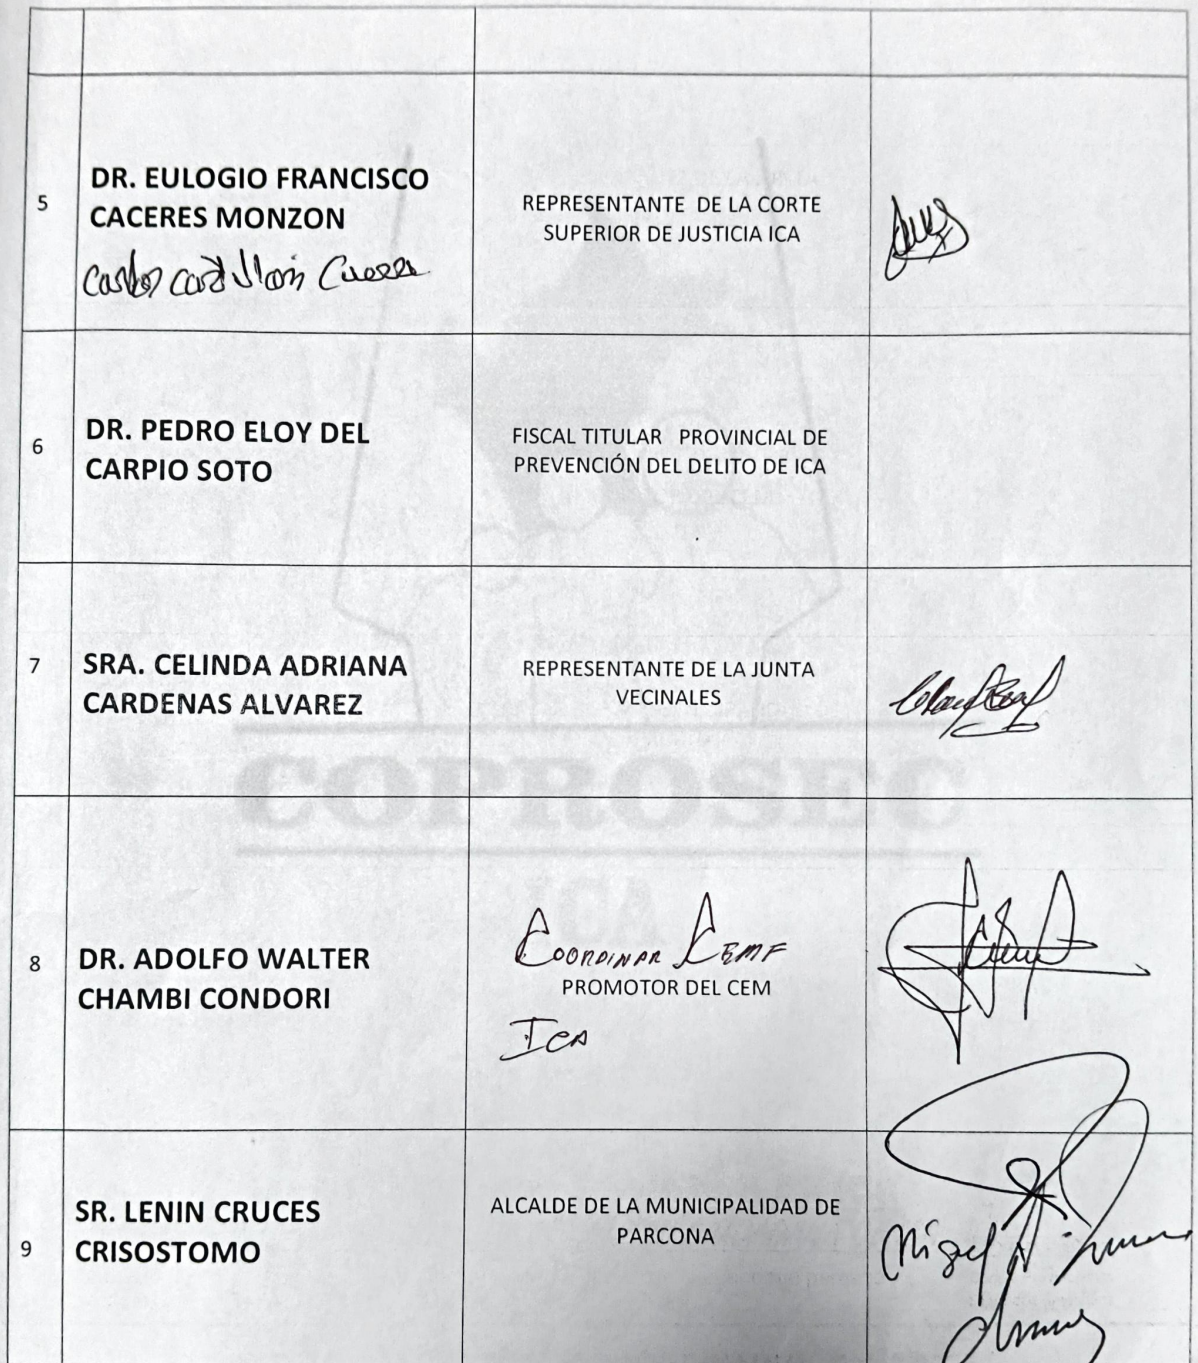 5
DR. EULOGIO FRANCISCO
CACERES MONZON
REPRESENTANTE DE LA CORTE
SUPERIOR DE JUSTICIA ICA
6
DR. PEDRO ELOY DEL
CARPIO SOTO
FISCAL TITULAR PROVINCIAL DE
PREVENCIÓN DEL DELITO DE ICA
7
SRA. CELINDA ADRIANA
CARDENAS ALVAREZ
REPRESENTANTE DE LA JUNTA
VECINALES
COPROSEC
ICA
8
DR. ADOLFO WALTER
CHAMBI CONDORI
COORDINAR
PROMOTOR DEL CEM
ICA
9
SR. LENIN CRUCES
CRISOSTOMO
ALCALDE DE LA MUNICIPALIDAD DE
PARCONA
Miguel